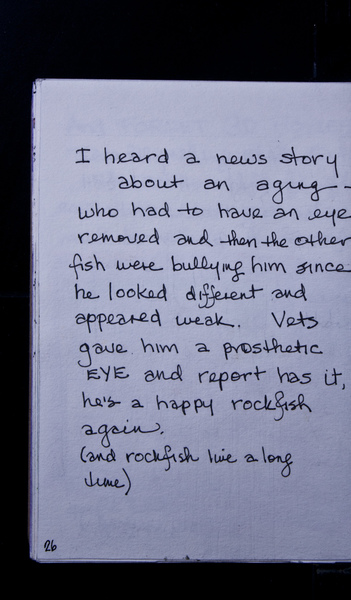 I heard a news story
about an aging -
who had to have an eye
removed and then the other
fish were bullying him since
he looked different and
appeared weak. Vets
gave him a prosthetic
EYE and report has it,
he's a happy rockfish
again.
(and rockfish live a long
time)
26